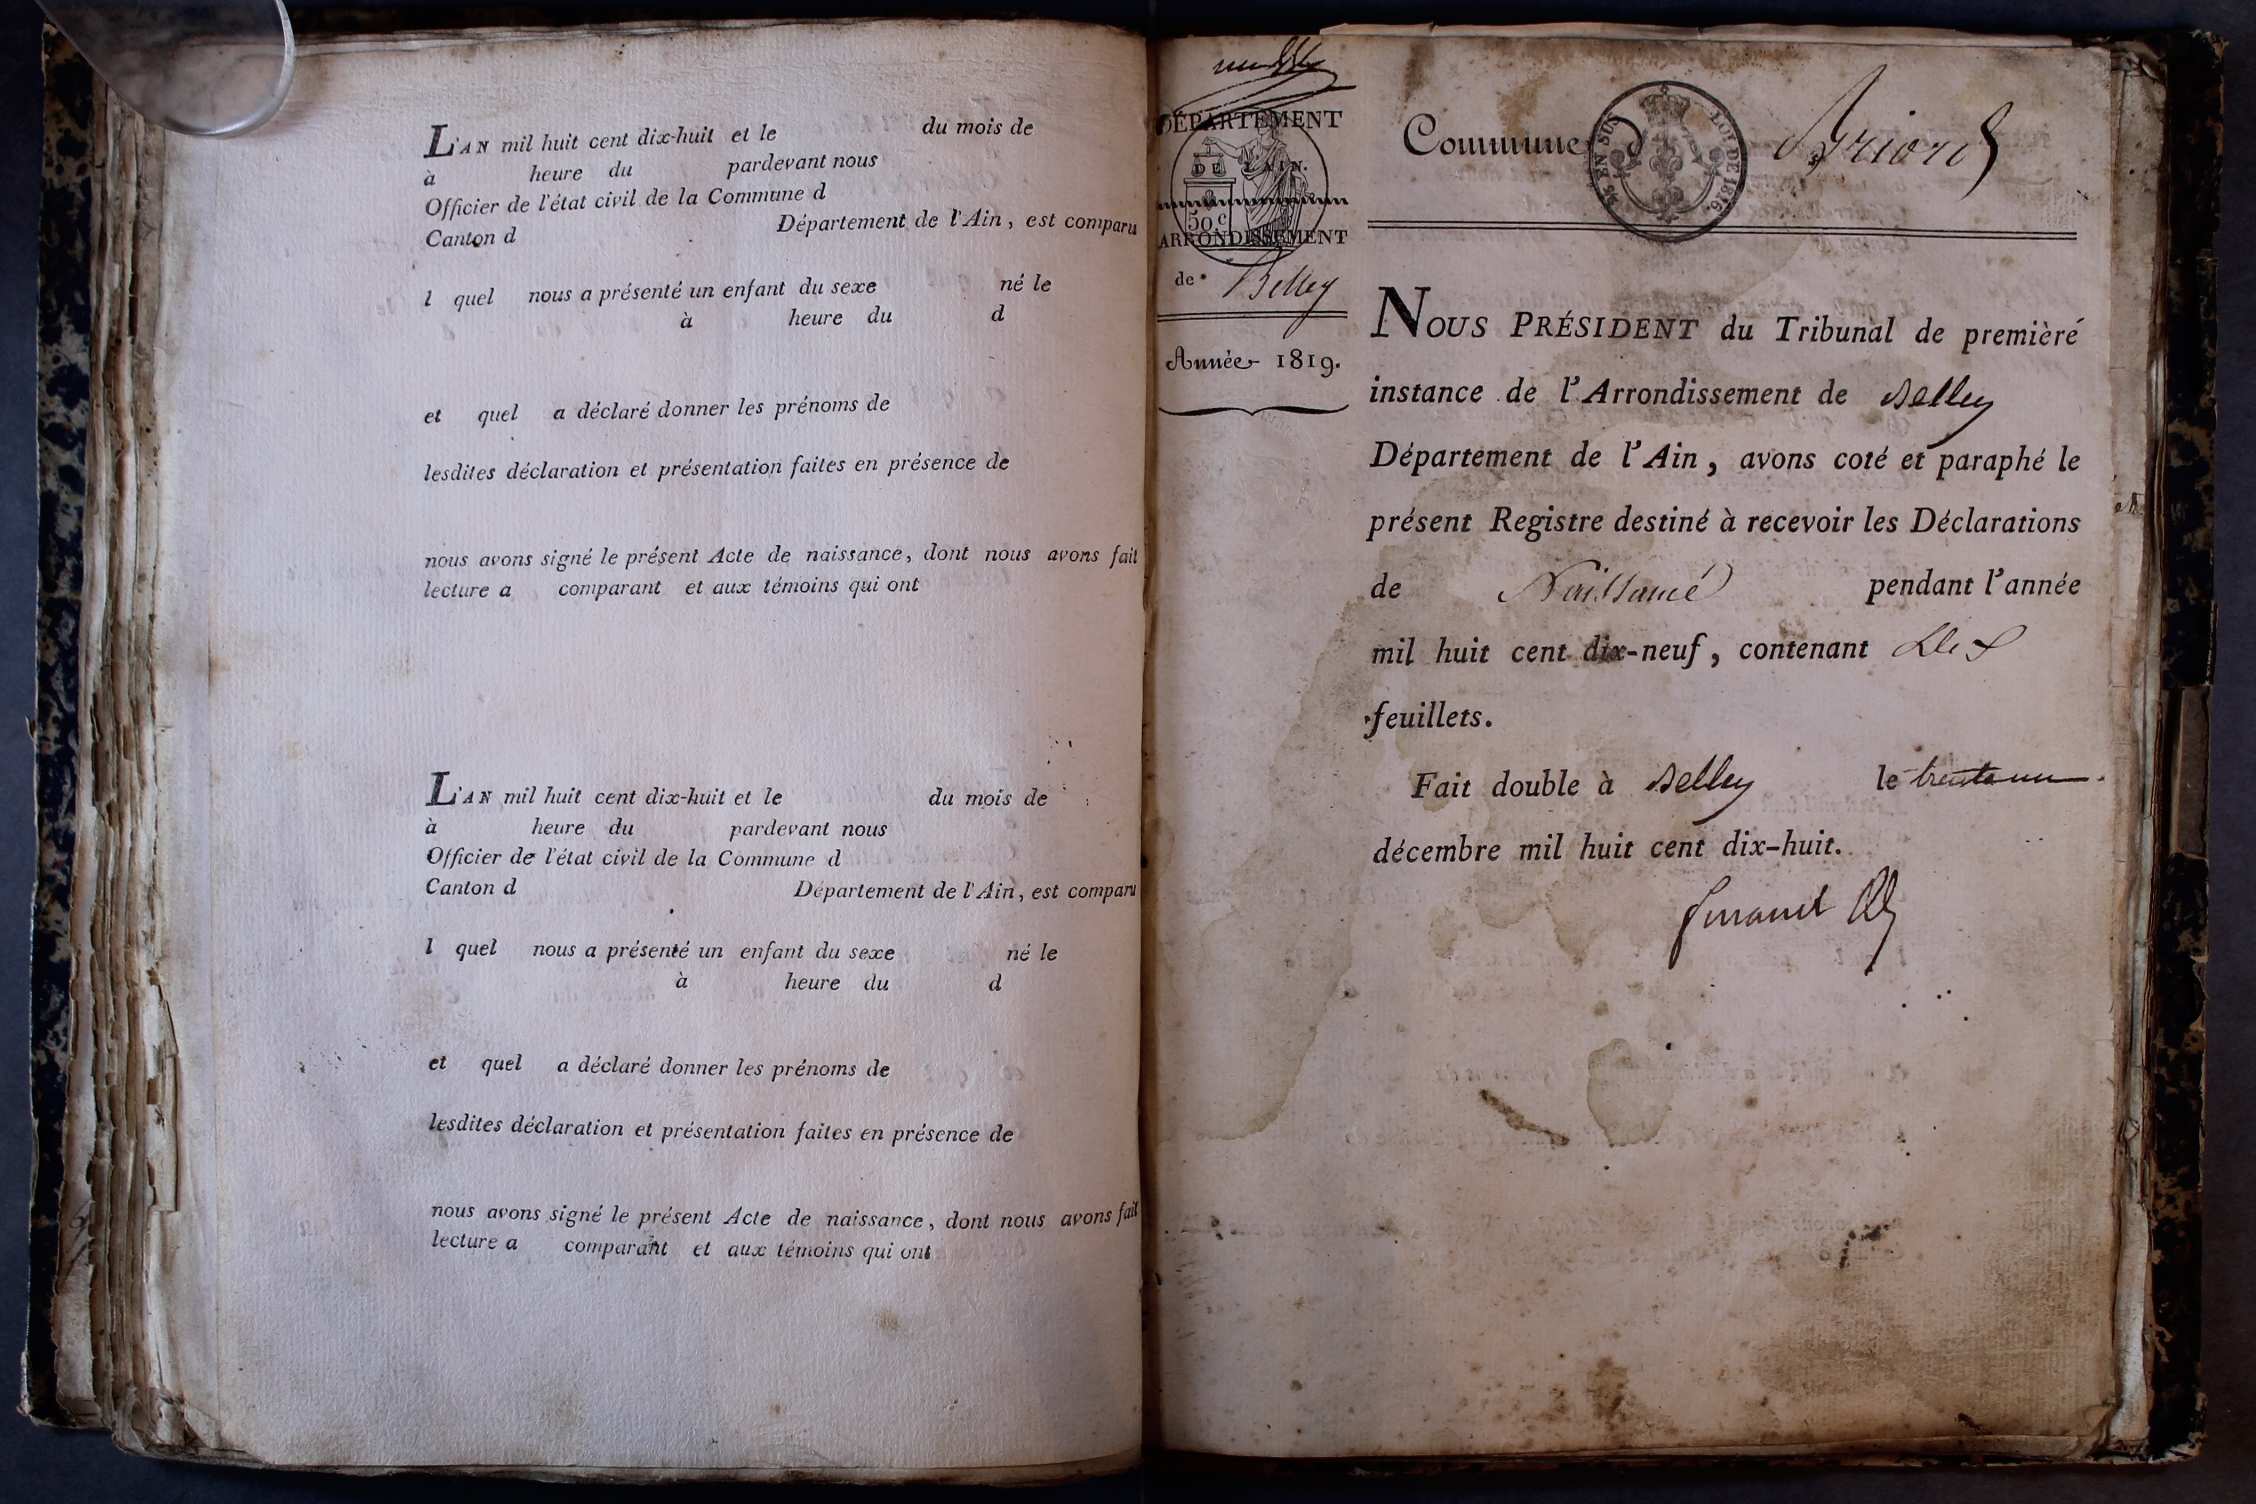 L'AN mil huit cent dix-huit et le du mois de
à heure du pardevant nous
Officier de l'état civil de la Commune d
Canton d Département de l'Ain, est comparu
l quel nous a présenté un enfant du sexe né le
à heure du d
et quel a déclaré donner les prénoms de
lesdites déclaration et présentation faites en présence de
nous avons signé le présent Acte de naissance, dont nous avons fait
lecture a comparant et aux témoins qui ont
L'AN mil huit cent dix-huit et le du mois de
à heure du pardevant nous
Officier de l'état civil de la Commune d
Canton d Département de l'Ain, est comparu
l quel nous a présenté un enfant du sexe né le
à heure du d
et quel a déclaré donner les prénoms de
lesdites déclaration et présentation faites en présence de
nous avons signé le présent Acte de naissance, dont nous avons fait
lecture a comparant et aux témoins qui ont
DÉPARTEMENT
DE L'AIN.
50c
ARRONDISSEMENT
de Belley
Année 1819.
Commune d Briord
EN SUS
LOI DE 1816.
NOUS PRÉSIDENT du Tribunal de première
instance de l'Arrondissement de Belley
Département de l'Ain, avons coté et paraphé le
présent Registre destiné à recevoir les Déclarations
de Naissance pendant l'année
mil huit cent dix-neuf, contenant dix
feuillets.
Fait double à Belley le trente un
décembre mil huit cent dix-huit.